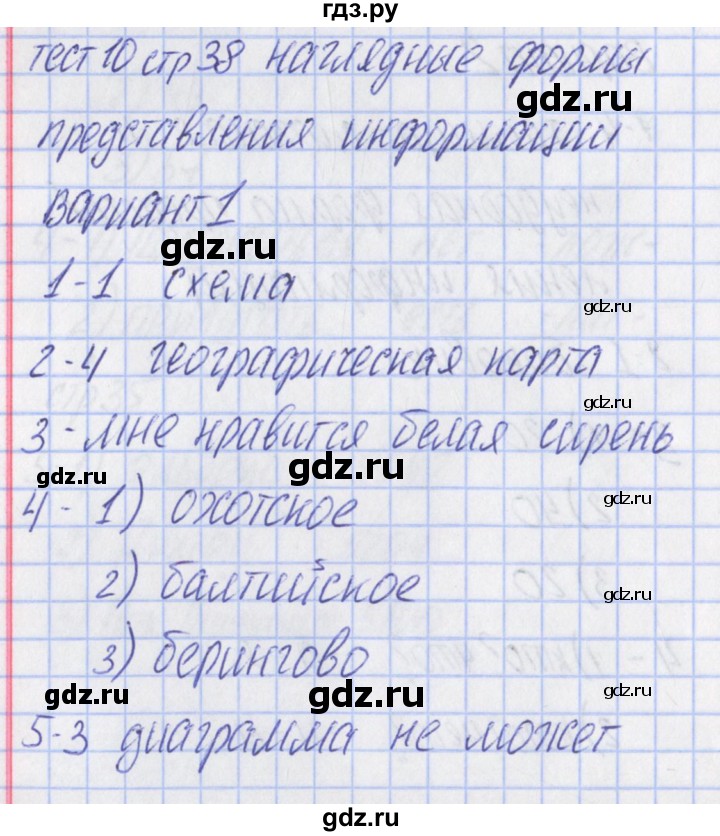 гдз.ру
тест 10 стр 38 наглядные формы
gdz.ru
представления информации
вариант 1
gdz.ru
1-1 схема
gdz.ru
2-4 географическая карта
gdz.ru
3-мне нравится белая сирень
gdz.ru
gdz.ru
4-1) охотское
gdz.ru
2) балтийское
gdz.ru
3) берингово
gdz.ru
gdz.ru
gdz.ru
5-3 диаграмма не может
gdz.ru